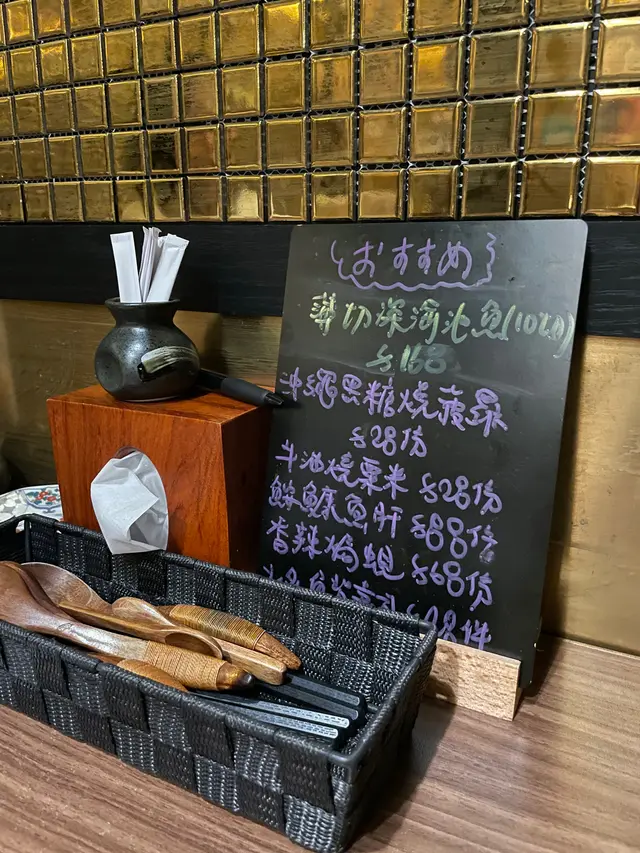 おすすめ
薄切深海池魚(10片)
$168
沖繩黑糖燒菠蘿
$28份
牛油燒粟米 $28份
鮟鱇魚肝 $88份
香辣梅蜆 $68份
$28件